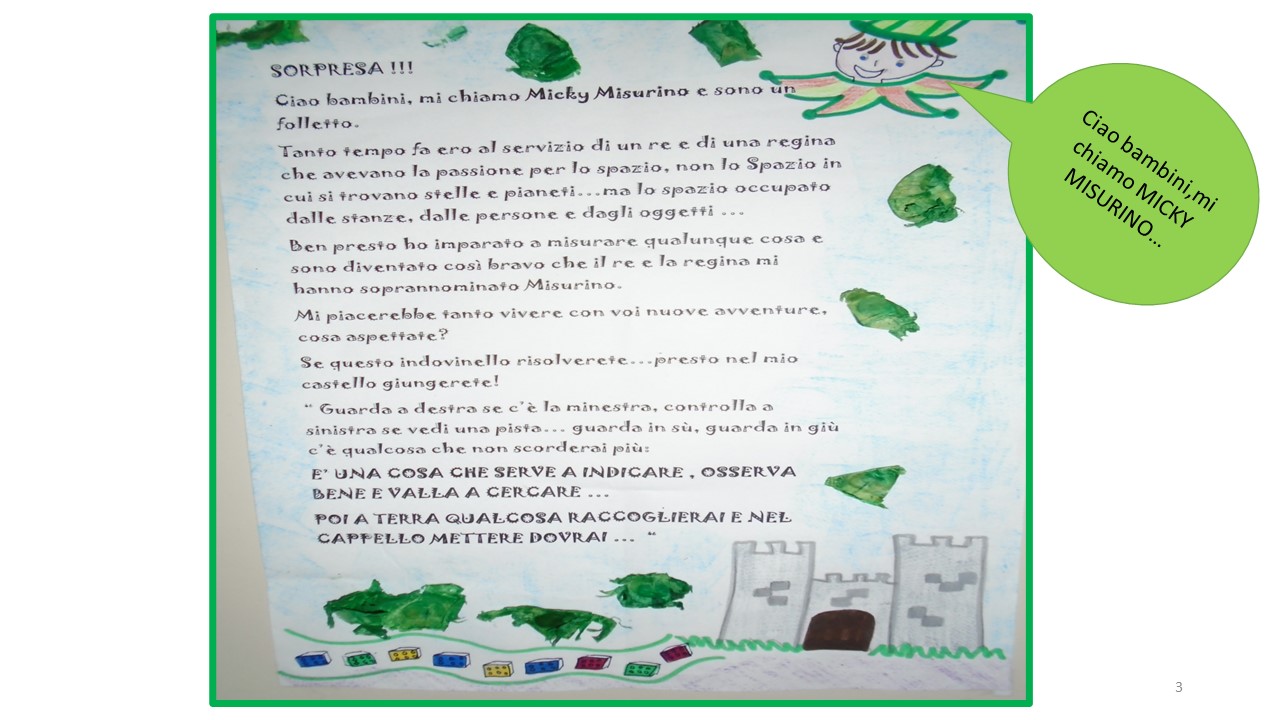 SORPRESA !!!
Ciao bambini, mi chiamo Micky Misurino e sono un
folletto.
Tanto tempo fa ero al servizio di un re e di una regina
che avevano la passione per lo spazio, non lo Spazio in
cui si trovano stelle e pianeti...ma lo spazio occupato
dalle stanze, dalle persone e dagli oggetti ...
Ben presto ho imparato a misurare qualunque cosa e
sono diventato così bravo che il re e la regina mi
hanno soprannominato Misurino.
Mi piacerebbe tanto vivere con voi nuove avventure,
cosa aspettate?
Se questo indovinello risolverete...presto nel mio
castello giungerete!
“ Guarda a destra se c'è la minestra, controlla a
sinistra se vedi una pista... guarda in sù, guarda in giù
c'è qualcosa che non scorderai più:
E' UNA COSA CHE SERVE A INDICARE , OSSERVA
BENE E VALLA A CERCARE ...
POI A TERRA QUALCOSA RACCOGLIERAI E NEL
CAPPELLO METTERE DOVRAI ... “
Ciao bambini,mi
chiamo MICKY
MISURINO...
3